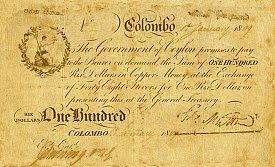 Colombo
1st January 1809
The Government of Ceylon promises to pay
to the Bearer on demand, the Sum of ONE HUNDRED
Rix Dollars in Copper Money at the Exchange
of Forty Eight Stivers for One Rix Dollar on
presenting this at the General Treasury.
RIX DOLLARS One Hundred
COLOMBO January